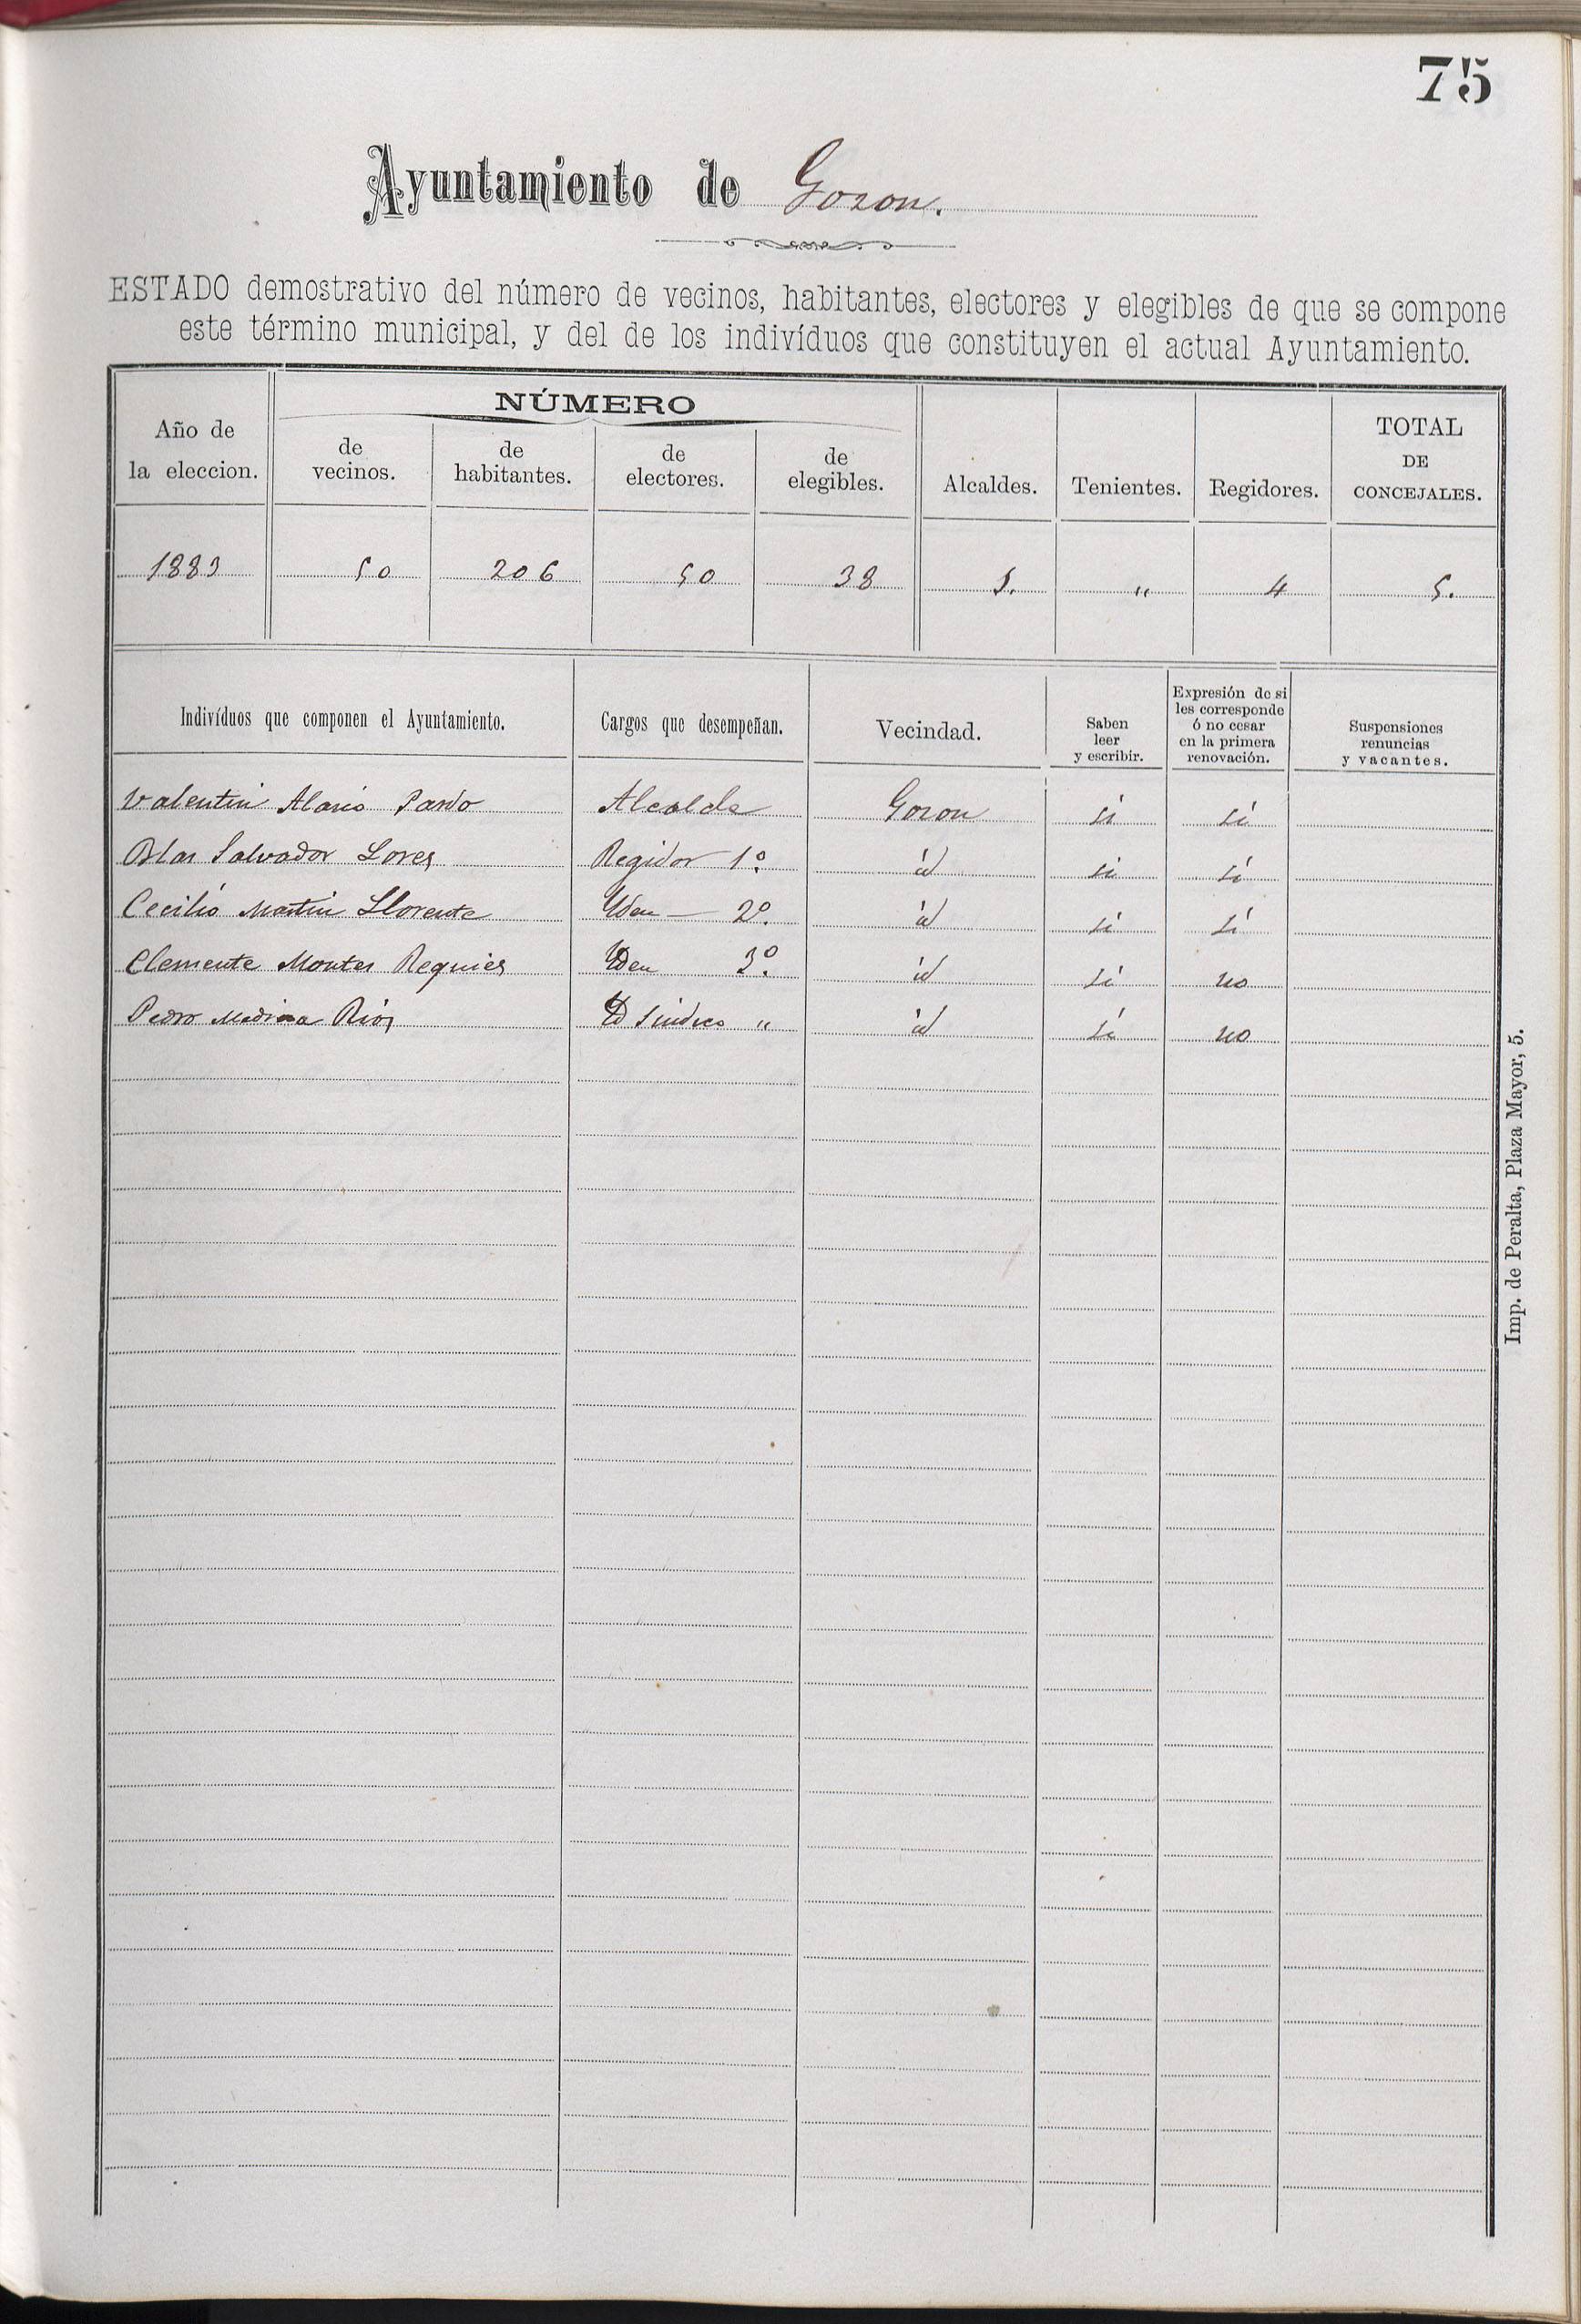 75
Ayuntamiento de Gozon.
ESTADO demostrativo del número de vecinos, habitantes, electores y elegibles de que se compone
este término municipal, y del de los indivíduos que constituyen el actual Ayuntamiento.
Año de la eleccion. NÚMERO de vecinos. de habitantes. de electores. de elegibles. Alcaldes. Tenientes. Regidores. TOTAL DE CONCEJALES.
1883 50 206 50 38 1. " 4 5.
Indivíduos que componen el Ayuntamiento. Cargos que desempeñan. Vecindad. Saben leer y escribir. Expresión de si les corresponde ó no cesar en la primera renovación. Suspensiones renuncias y vacantes.
Valentin Pardo Alcalde Gozon si sí
Blas Salvador Lores Regidor 1º id si sí
Cecilio Martin Llorente Idem — 2º. id si sí
Clemente Montes Requies Idem 3º. id sí no
Pedro Medina Rios Id Sindico " id sí no
Imp. de Peralta, Plaza Mayor, 5.